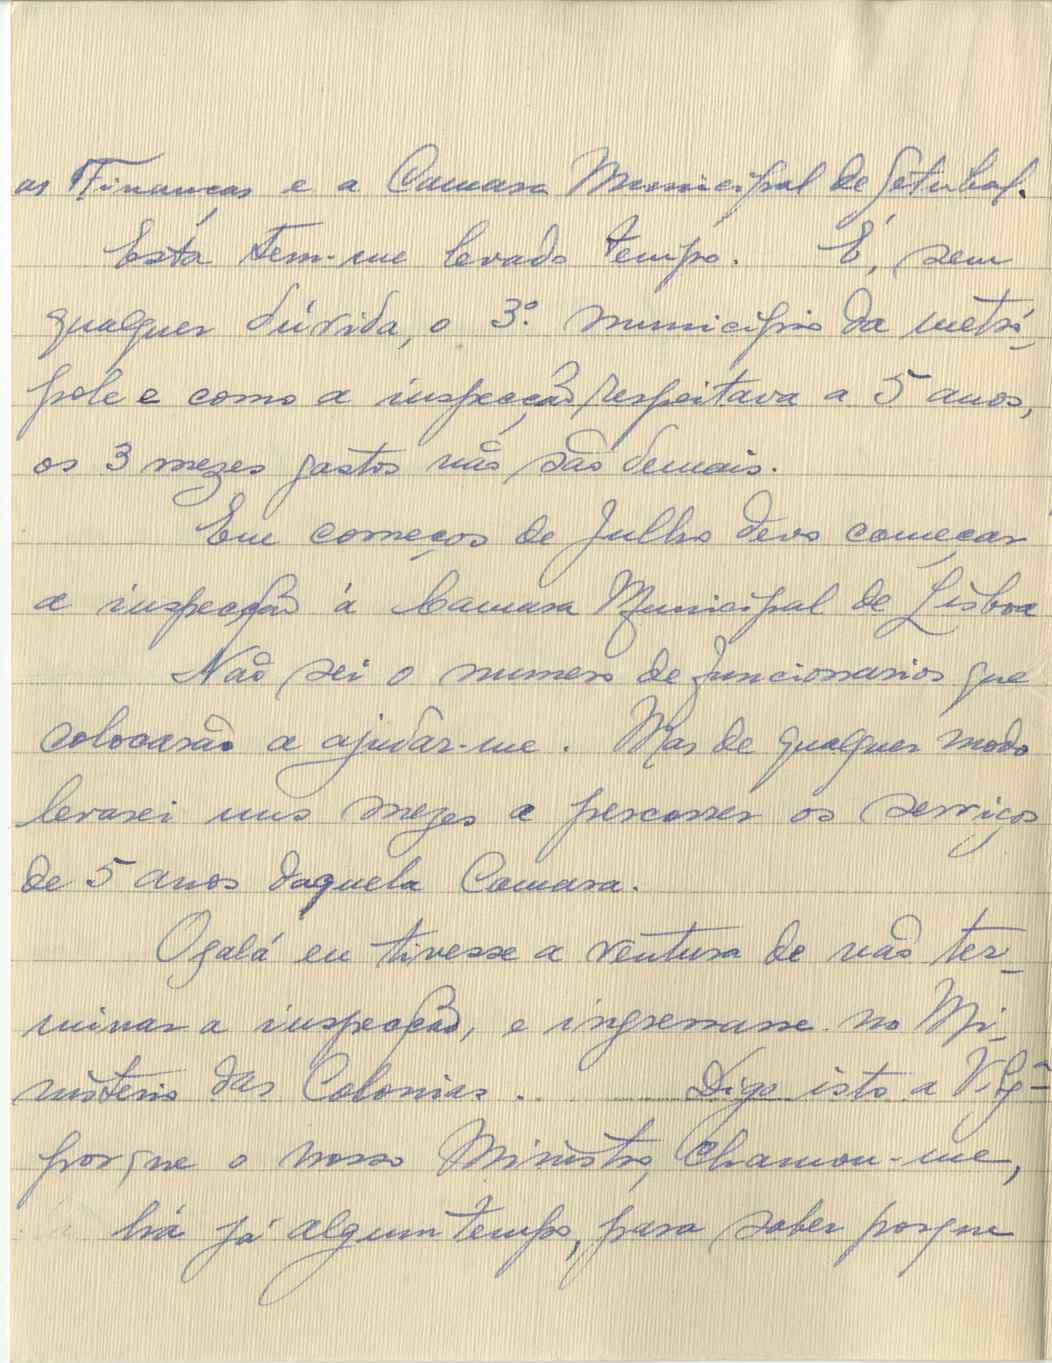 as Finanças e a Camara Municipal de Setubal.
Esta tem-me levado tempo. É, sem
qualquer dúvida, o 3º. municipio da metró-
pole e como a inspecção respeitava a 5 anos,
os 3 mezes gastos não são demais.
Em começos de Julho devo começar
a inspecção á Camara Municipal de Lisboa
Não sei o numero de funcionarios que
colocarão a ajudar-me. Mas de qualquer modo
levarei uns mezes a percorrer os serviços
de 5 anos daquela Camara.
Ogalá eu tivesse a ventura de não ter-
minar a inspecção, e ingressasse no Mi-
nisterio das Colonias. Digo isto a
porque o nosso Ministro, chamou-me,
há já algum tempo, para saber porque